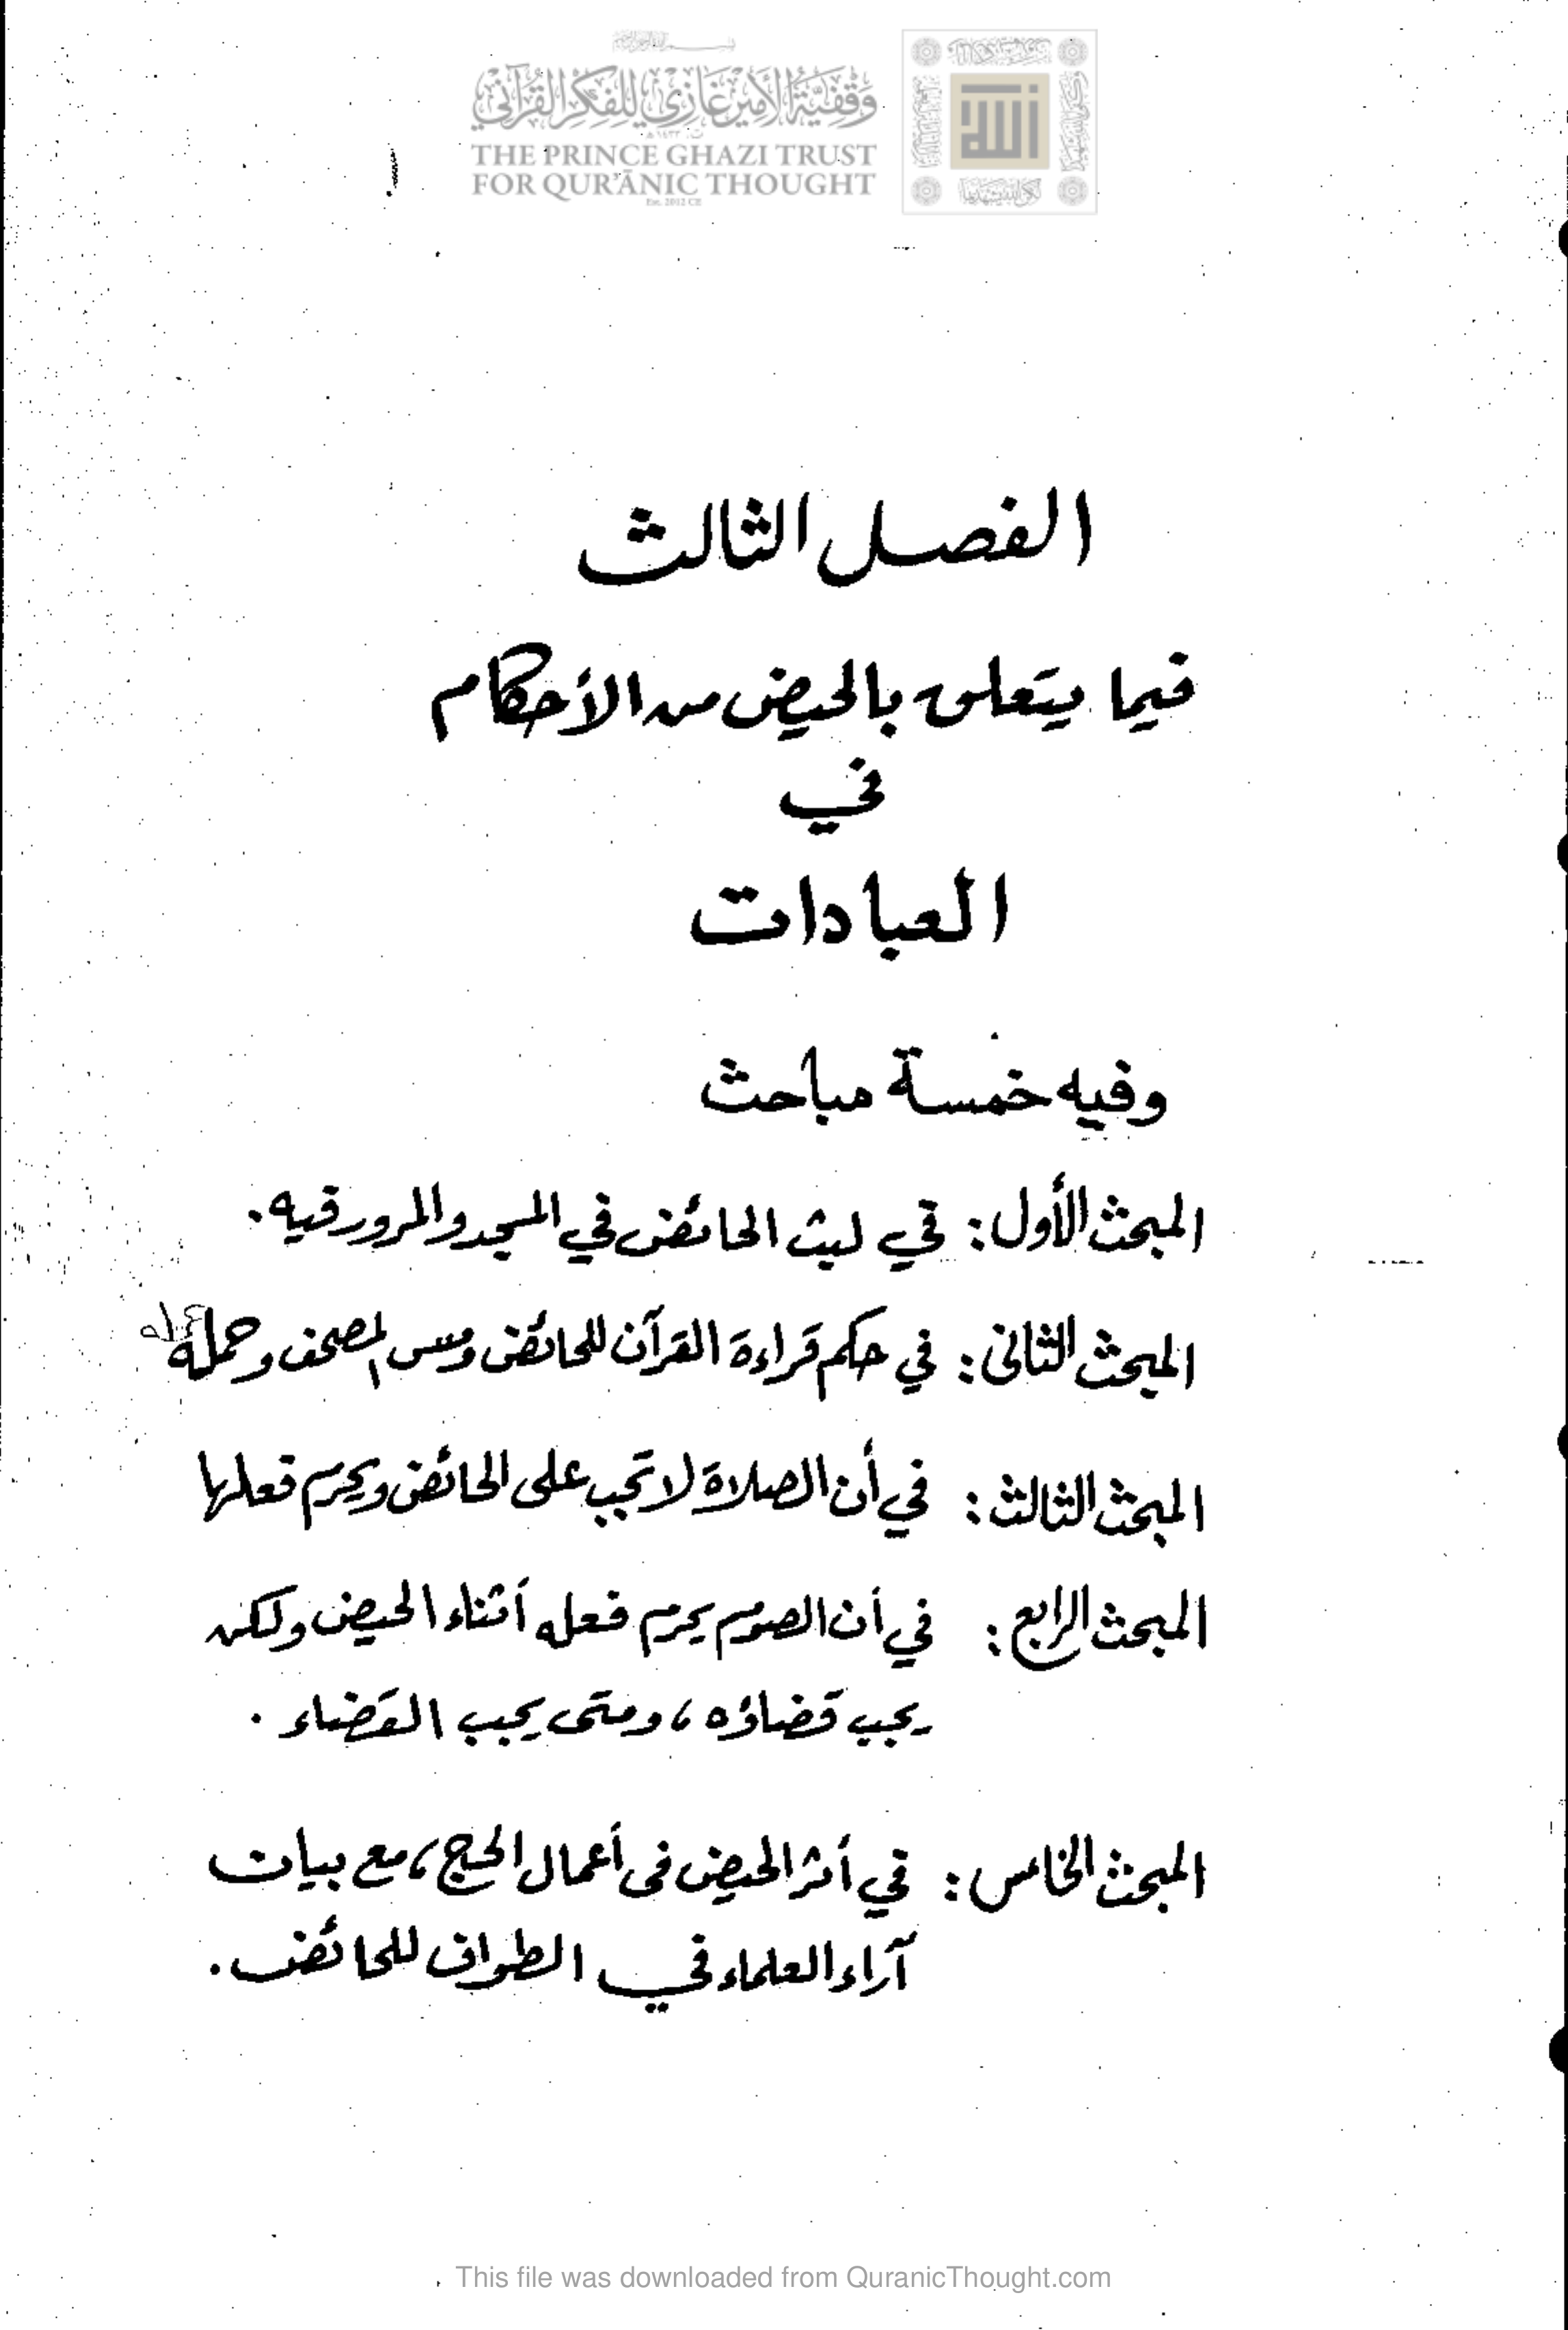 وقفية الأمير غازي للفكر القرآني
THE PRINCE GHAZI TRUST
FOR QUR'ĀNIC THOUGHT
Est. 2012 CE
الفصل الثالث
فيما يتعلق بالحيض من الأحكام
في
العبادات
وفيه خمسة مباحث
المبحث الأول: في لبث الحائض في المسجد والمرور فيه.
المبحث الثاني: في حكم قراءة القرآن للحائض ومس المصحف وحمله
المبحث الثالث: في أن الصلاة لا تجب على الحائض ويحرم فعلها
المبحث الرابع: في أن الصوم يحرم فعله أثناء الحيض ولكن
يجب قضاؤه، ومتى يجب القضاء.
المبحث الخامس: في أثر الحيض فى أعمال الحج، مع بيان
آراء العلماء في الطواف للحائض.
This file was downloaded from QuranicThought.com